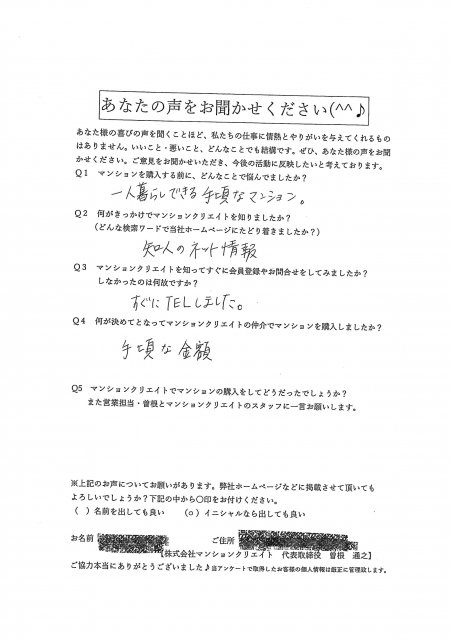 あなたの声をお聞かせください(^^♪
あなた様の喜びの声を聞くことほど、私たちの仕事に情熱とやりがいを与えてくれるもの
はありません。いいこと・悪いこと、どんなことでも結構です。ぜひ、あなた様の声をお聞
かせください。ご意見をお聞かせいただき、今後の活動に反映したいと考えております。
Q１ マンションを購入する前に、どんなことで悩んでましたか？
一人暮らしできる手頃なマンション。
Q２ 何がきっかけでマンションクリエイトを知りましたか？
（どんな検索ワードで当社ホームページにたどり着きましたか？）
知人のネット情報
Q３ マンションクリエイトを知ってすぐに会員登録やお問合せをしてみましたか？
しなかったのは何故ですか？
すぐにTELしました。
Q４ 何が決めてとなってマンションクリエイトの仲介でマンションを購入しましたか？
手頃な金額
Q５ マンションクリエイトでマンションの購入をしてどうだったでしょうか？
また営業担当・曽根とマンションクリエイトのスタッフに一言お願いします。
※上記のお声についてお願いがあります。弊社ホームページなどに掲載させて頂いても
よろしいでしょうか？下記の中から〇印をお付けください。
（ ）名前を出しても良い （○）イニシャルなら出しても良い
お名前 ご住所
【株式会社マンションクリエイト 代表取締役 曽根 通之】
ご協力本当にありがとうございました♪当アンケートで取得したお客様の個人情報は厳正に管理致します。